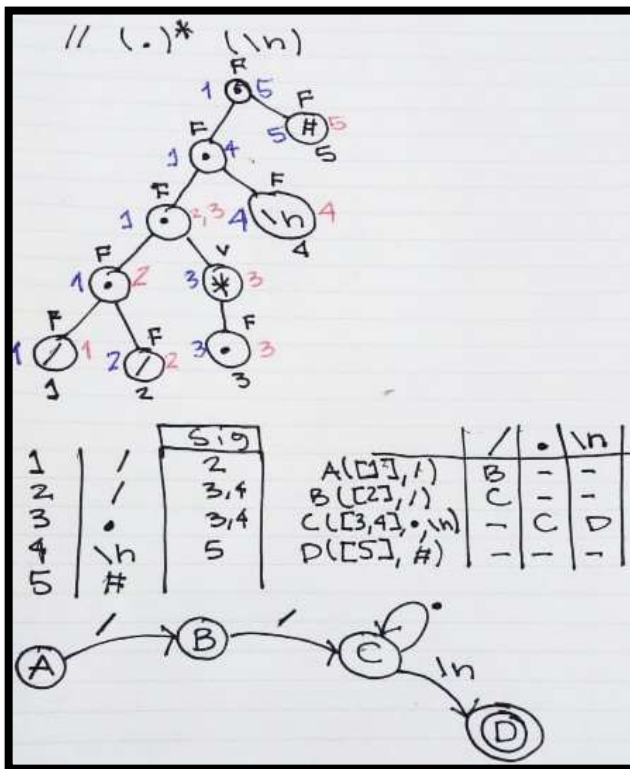 // (.)* (\n)
F
1 . 5
F
5 # 5
5
F
1 . 4
F
4 \n 4
4
F
1 . 2,3
V
3 * 3
F
1 . 2
F
3 . 3
3
F
1 / 1
1
F
2 / 2
2
Sig
1 / 2
2 / 3,4
3 . 3,4
4 \n 5
5 #
/ . \n
A([1], /) B - -
B([2], /) C - -
C([3,4], ., \n) - C D
D([5], #) - - -
/ / .
A B C \n
D